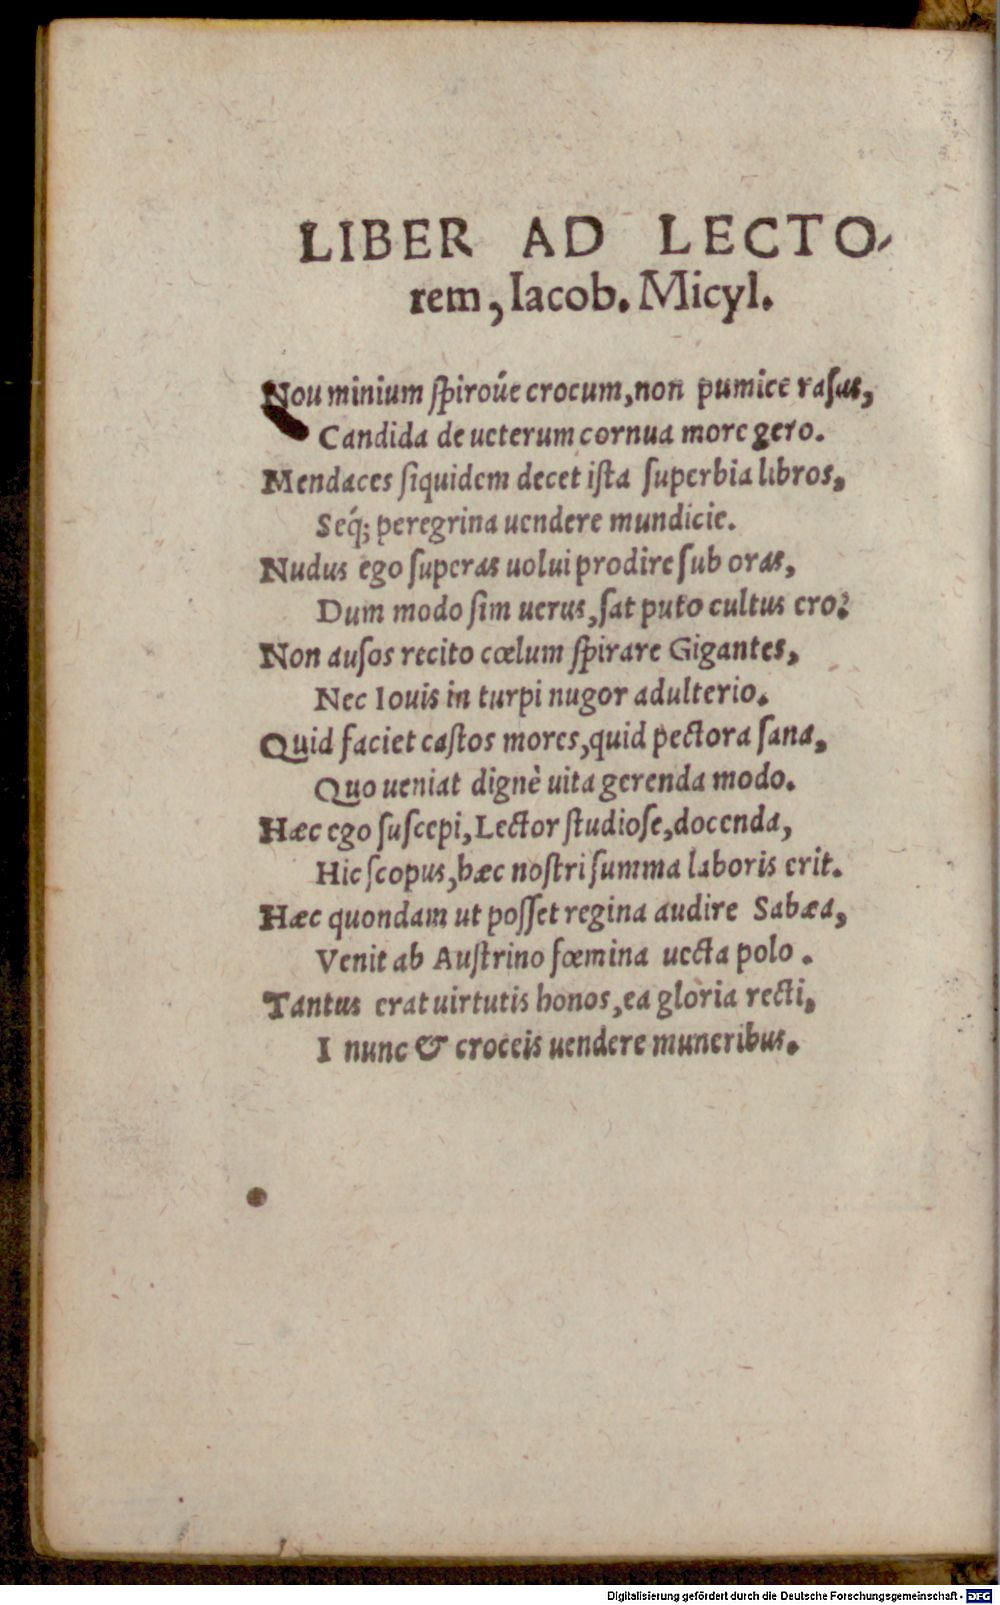 LIBER AD LECTO-
rem, Iacob. Micyl.
Nou minium ſpiroúe crocum, non pumice raſus,
Candida de ueterum cornua more gero.
Mendaces ſiquidem decet iſta ſuperbia libros,
Seq́; peregrina uendere mundicie.
Nudus ego ſuperas uolui prodire ſub oras,
Dum modo ſim uerus, ſat puto cultus ero?
Non auſos recito cœlum ſpirare Gigantes,
Nec Iouis in turpi nugor adulterio.
Quid faciet caſtos mores, quid pectora ſana,
Quo ueniat dignè uita gerenda modo.
Hæc ego ſuſcepi, Lector ſtudioſe, docenda,
Hic ſcopus, hæc noſtri ſumma laboris erit.
Hæc quondam ut poſſet regina audire Sabæa,
Venit ab Auſtrino fœmina uecta polo.
Tantus erat uirtutis honos, ea gloria recti,
I nunc & croceis uendere muneribus.
Digitalisierung gefördert durch die Deutsche Forschungsgemeinschaft - DFG